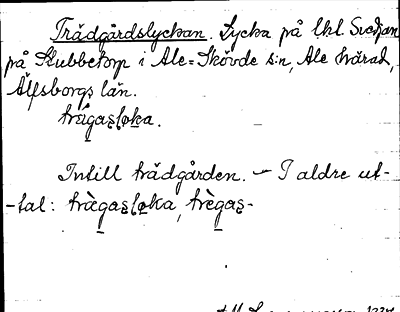 Trädgårdslyckan. Lycka på lhl. Svedjan
på Stubbetorp i Ale=Skövde s:n, Ale härad,
Älfsborgs län.
trǽgas̨lo̱ka.
Intill trädgården. — I äldre ut-
-tal: træ̀gas̨lo̱ka, trègas̨-